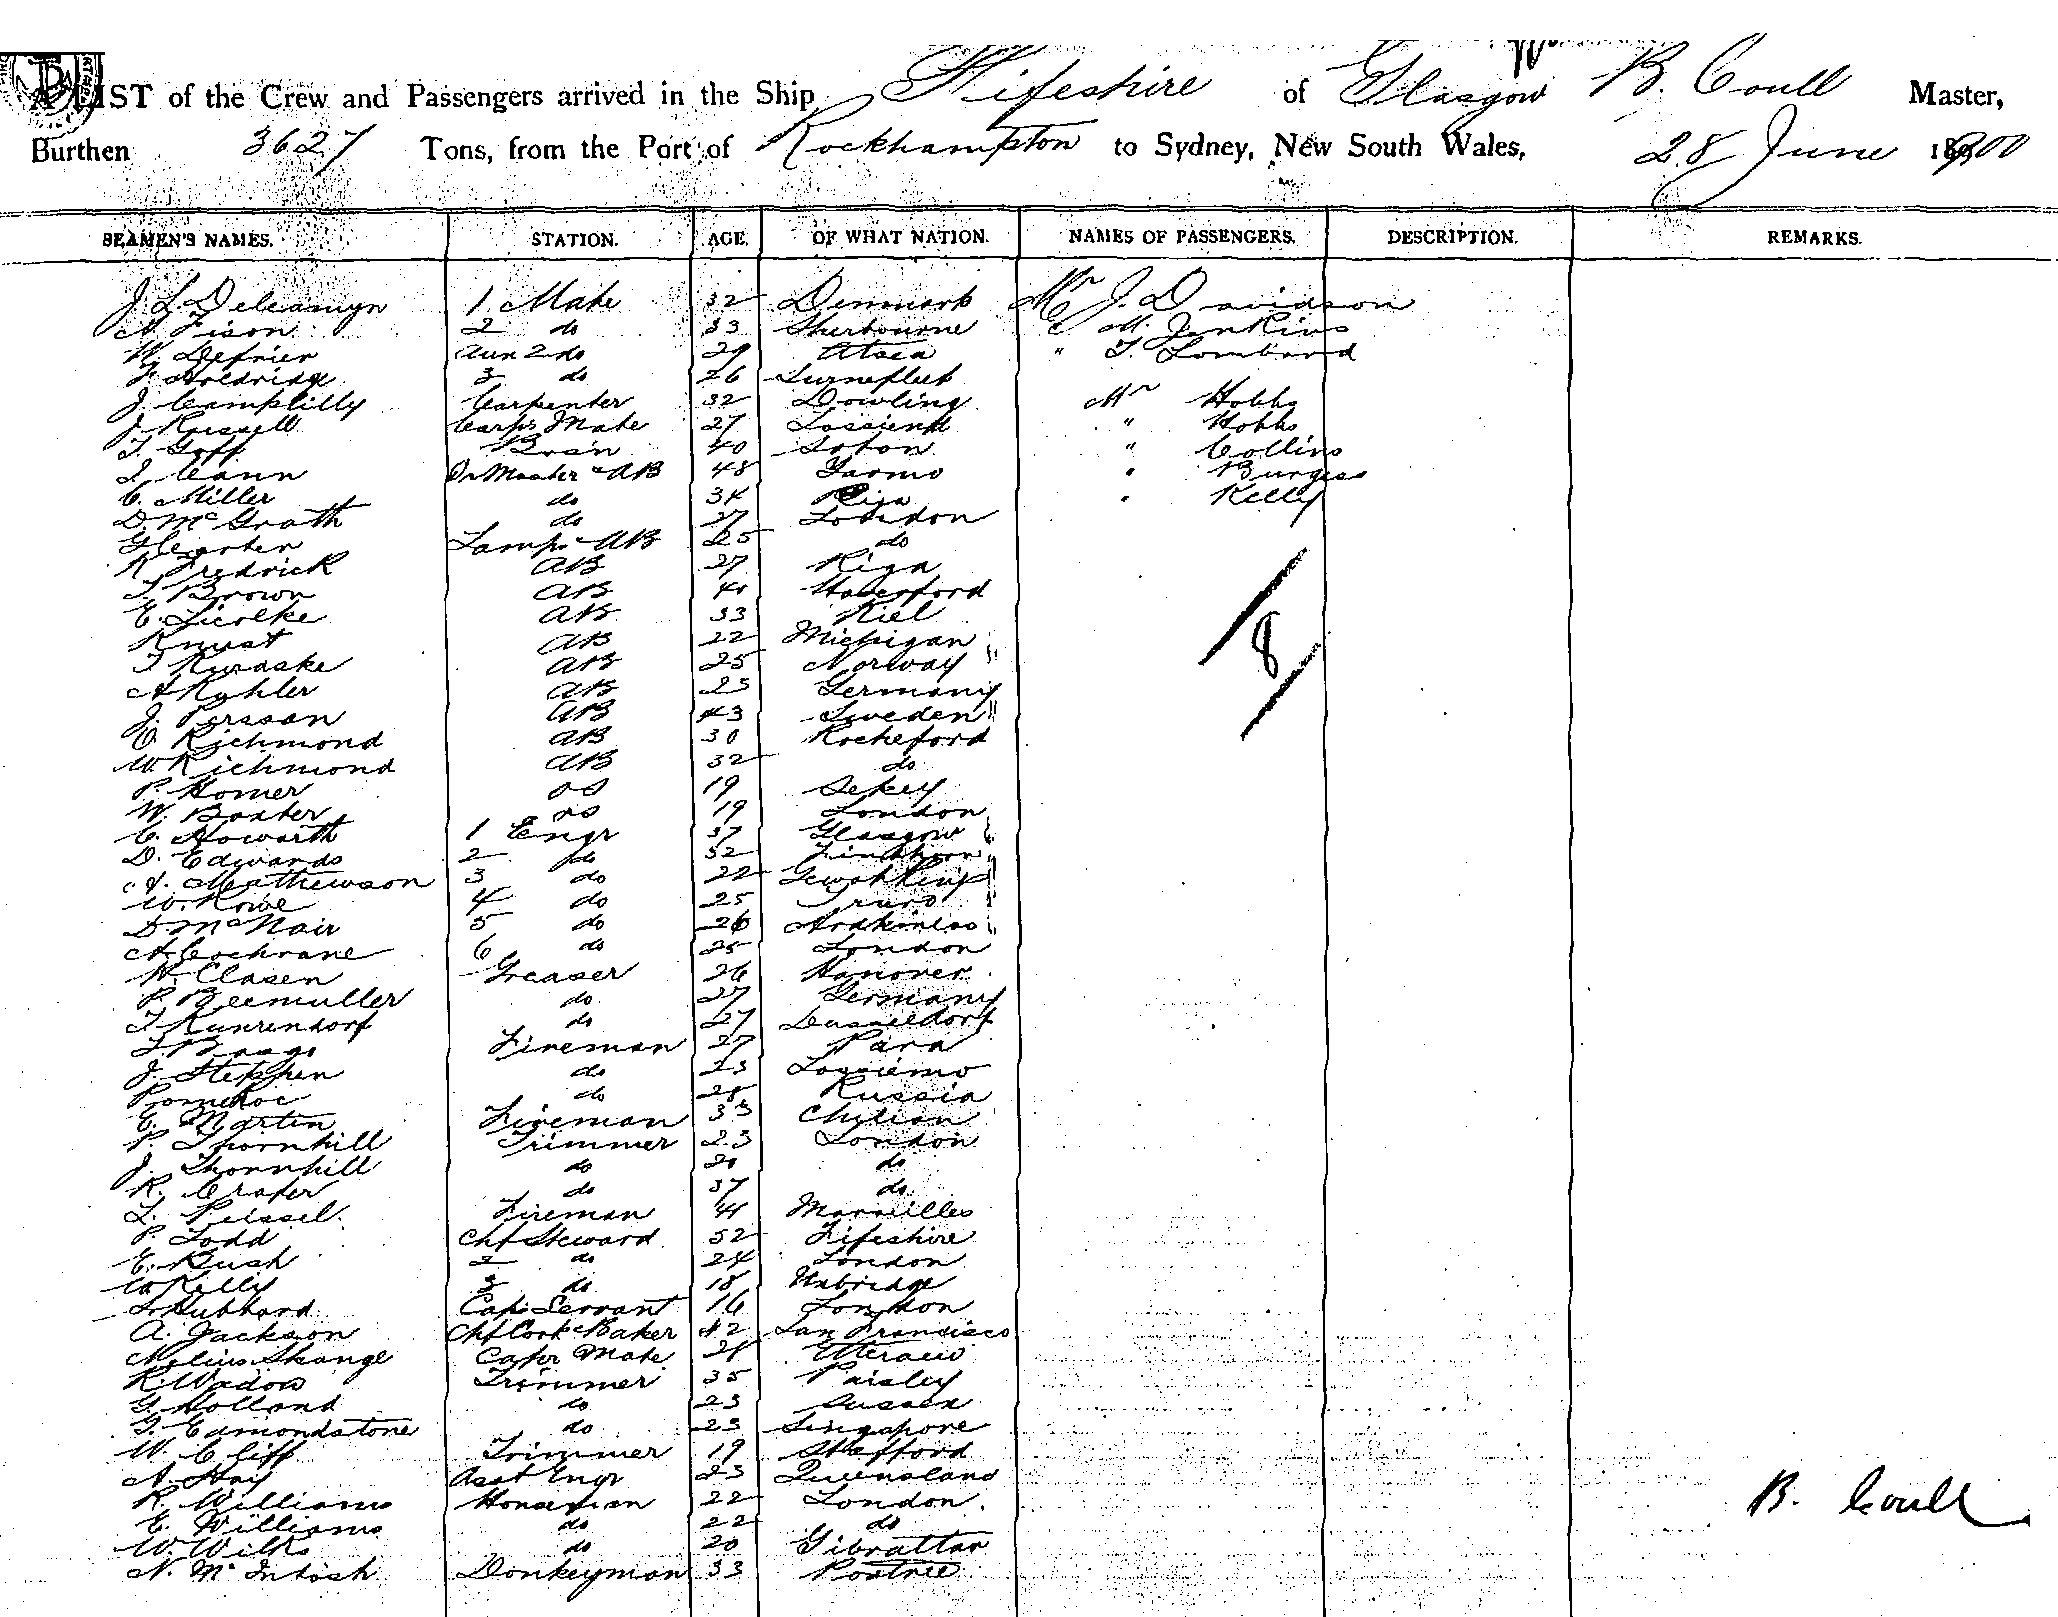 LIST of the Crew and Passengers arrived in the Ship Fifeshire of Glasgow B. Coull Master,
Burthen 3627 Tons, from the Port of Rockhampton to Sydney, New South Wales, 28 June 1900
SEAMEN'S NAMES. STATION. AGE. OF WHAT NATION. NAMES OF PASSENGERS. DESCRIPTION. REMARKS.
1 Mate 32 Denmark Mr J. Davidson
2 do 33 Sherbourne " M. Jenkins
W. 2 do 29 " T. Lombard
J. Holdridge 3 do 26
J. Camplilly Carpenter 32 Dowling Mr Hobbs
J. Russell Carpr Mate 27 " Hobbs
T. Goff Bosn 40 Soton " Collins
J. Cann Qr Master & AB 48 " Burgess
C. Miller do 34 Riga " Kelly
D. McGrath do 27 London
G Carter Lamps & AB 25 do
K. Fredrick AB 27 Riga
T. Brown AB 40 Haverford
E. Lierlke AB 33 Kiel
Knust AB 22 Michigan
T. AB 25 Norway
A Kohler AB 23 Germany
J. Persson AB 43 Sweden
C. Richmond AB 30 Rocheford
8
W Richmond AB 32 do
P. Homer OS 19
W. Baxter OS 19 London
C. Howarth 1 Engr 37 Glasgow
D. Edwards 2 do 32
A. Mathewson 3 do 22
W. Rowe 4 do 25 Truro
D McNair 5 do 26
A Cochrane 6 do 25 London
H. Clasen Greaser 26 Hanover
P. Beemuller do 27 Germany
T. do 27 Dusseldorf
Fireman 27 Para
J. Stephen do 23
do 28 Russia
E. Martin Fireman 33 Chilian
P. Thornhill Trimmer 23 London
J. Thornhill do 20 do
R. do 37 do
L. Peissel Fireman 41 Marseilles
P. Todd Chf Steward 52 Fifeshire
E. Bush 2 do 24 London
W Kelly 3 do 18 Uxbridge
Hubbard Capt Servant 16 London
A. Jackson Chf Cook & Baker 42 San Francisco
Carpr Mate 28
R. Trimmer 35 Paisley
G. Holland do 23 Sussex
G. Edmondstone do 23 Singapore
W. Cliff Trimmer 19 Stafford
A. Hay Asst Engr 23 Queensland
R. Williams Horseman 22 London.
E. Williams do 22 do
B. Coull
W. Wilks do 20 Gibraltar
N. McIntosh Donkeyman 33 Portree